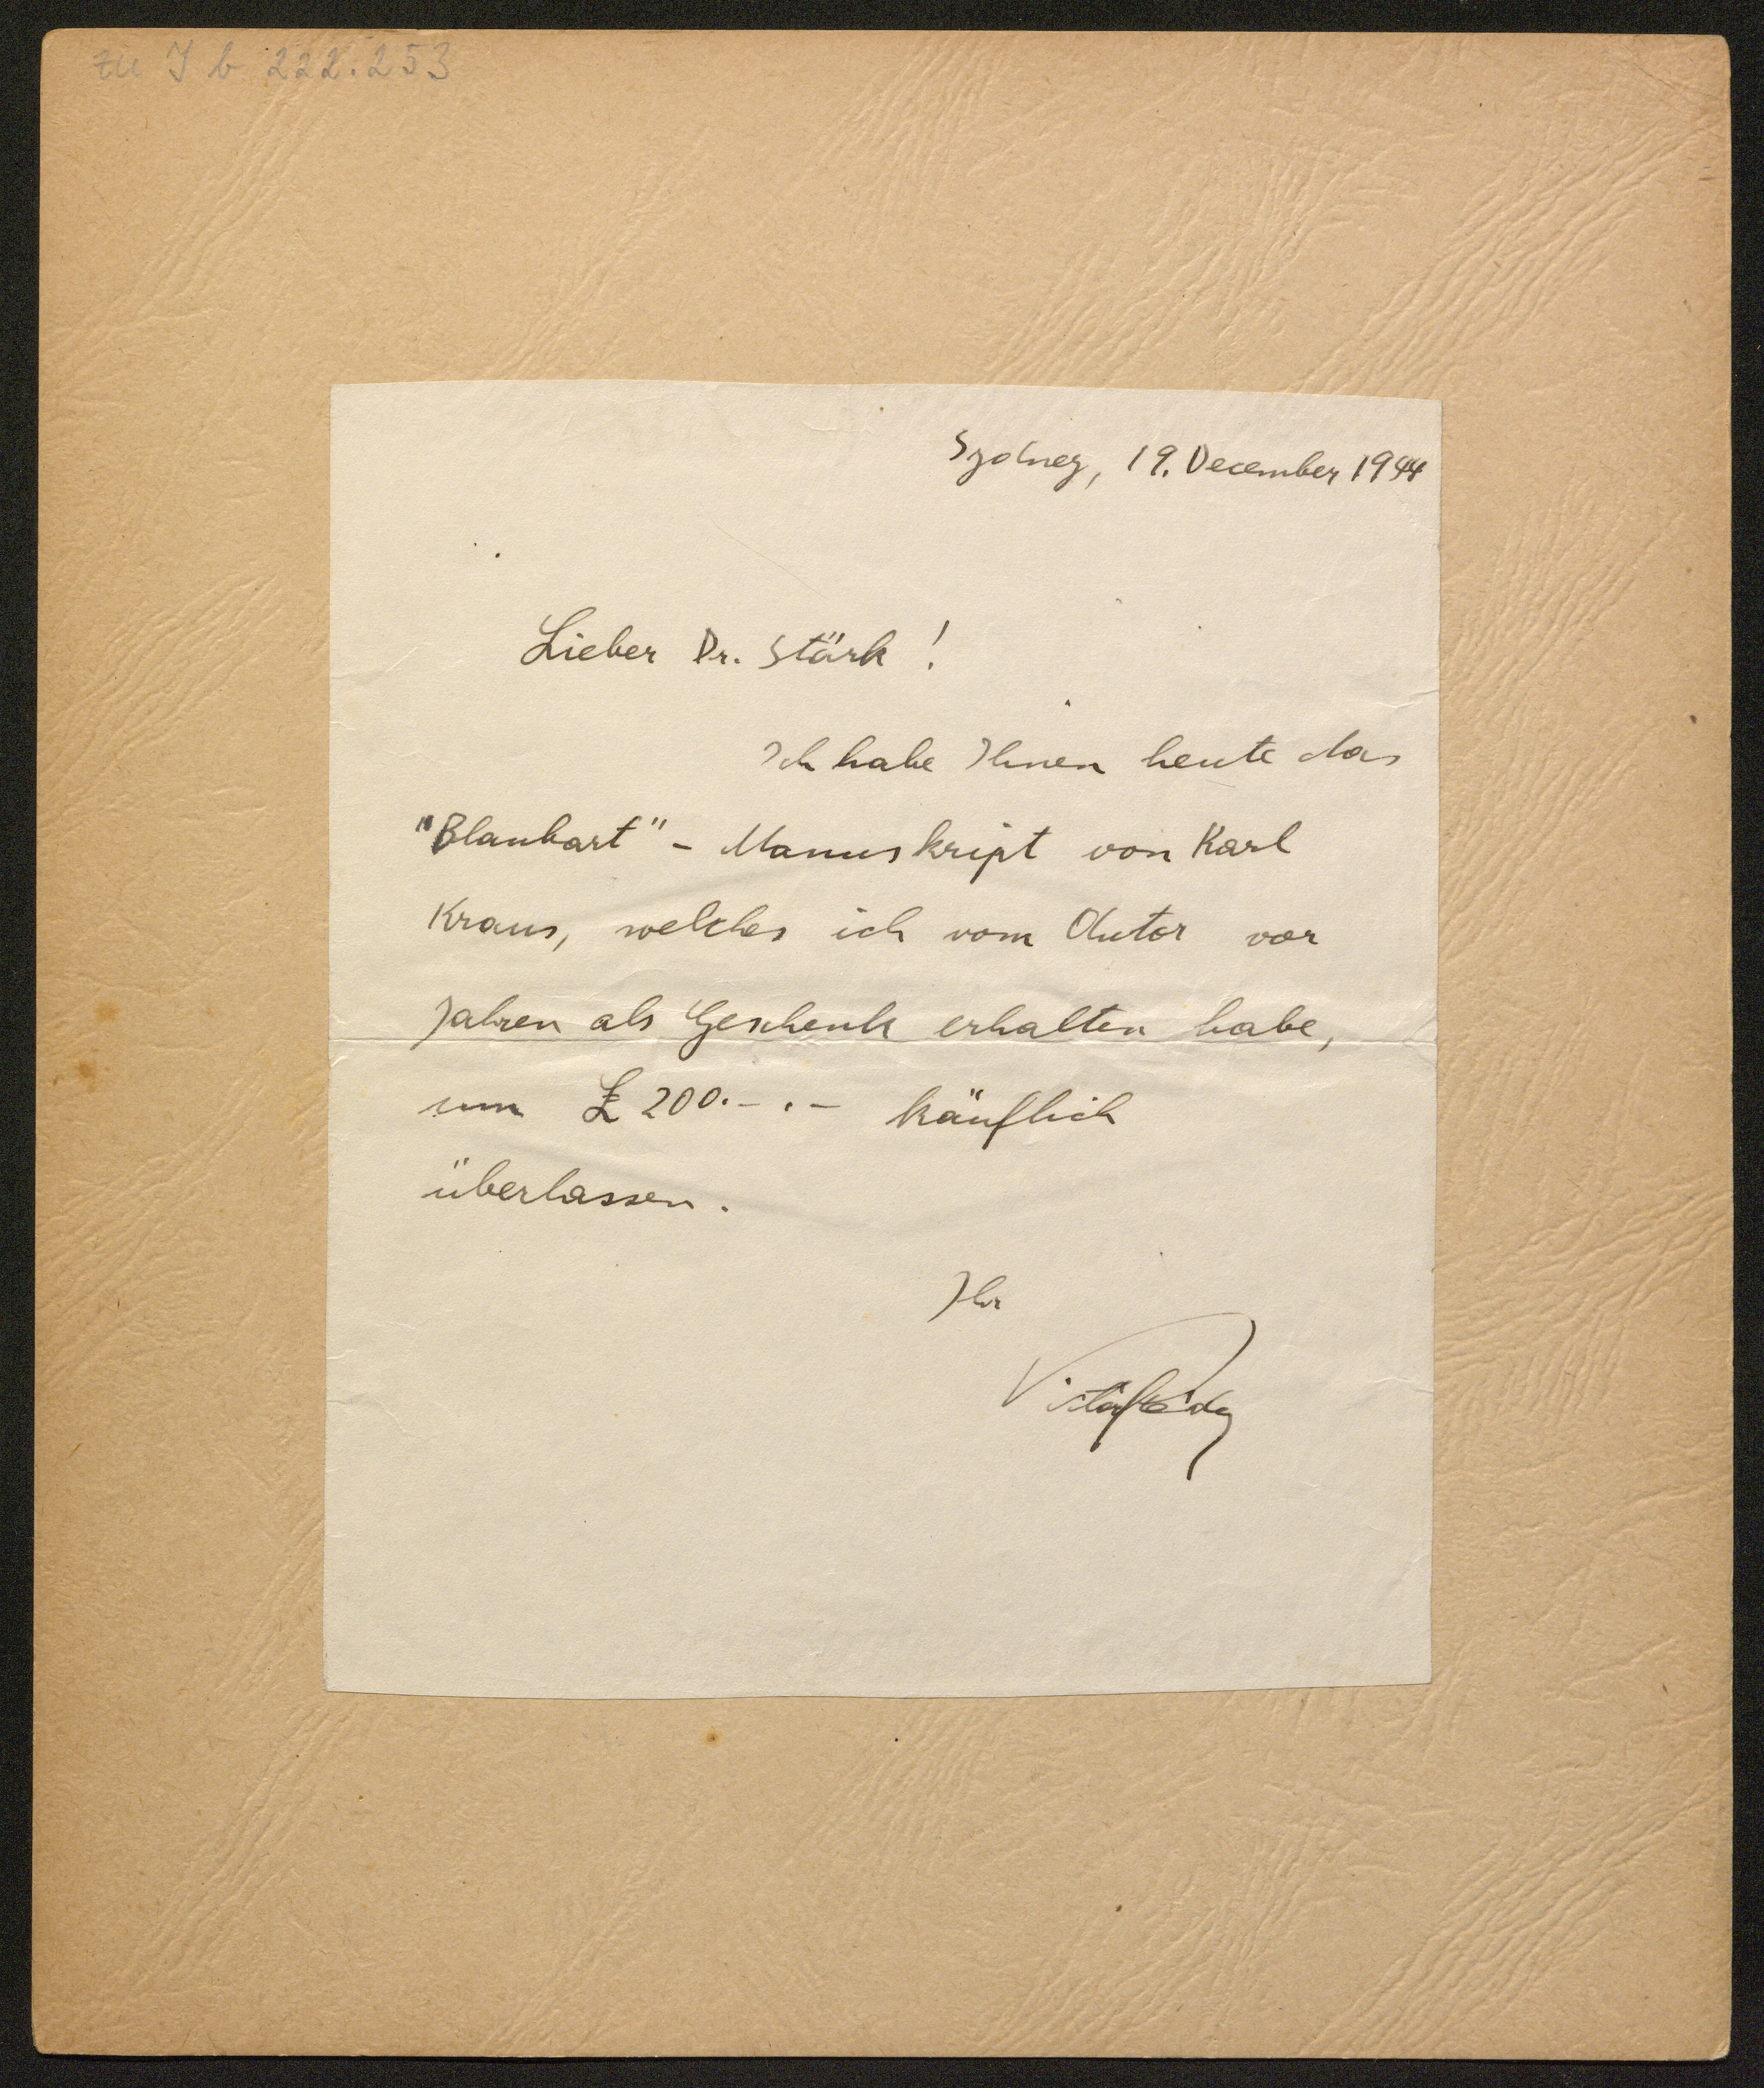 zu I b 222.253
Sydney, 19. December 1944
Lieber Dr. Stärk!
Ich habe Ihnen heute das
"Blaubart" - Manuskript von Karl
Kraus, welches ich vom Autor vor
Jahren als Geschenk erhalten habe,
um £ 200.-.- käuflich
überlassen.
Ihr